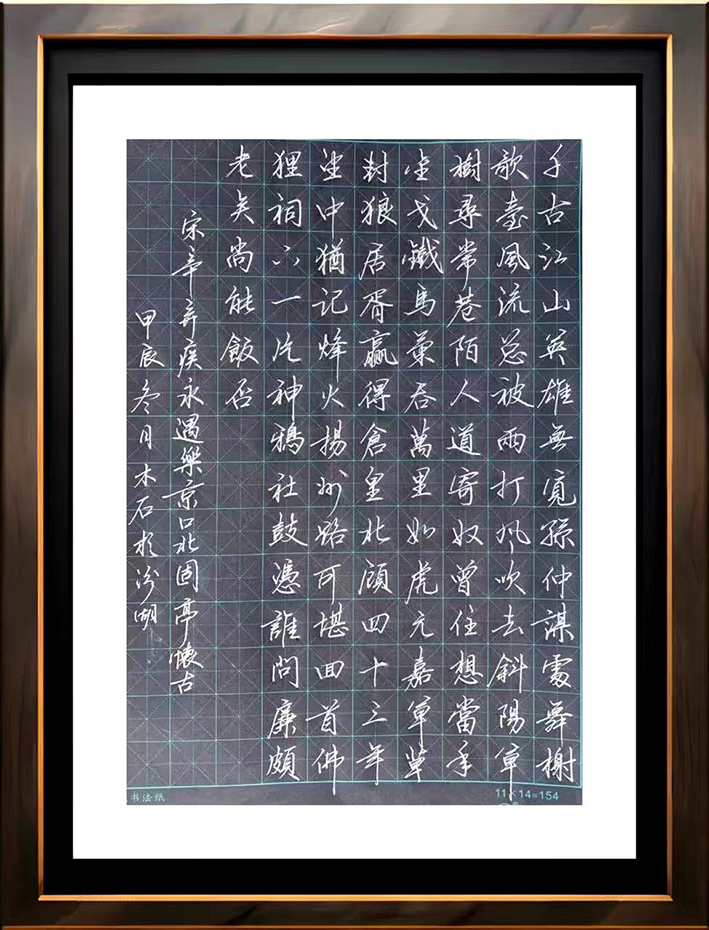 千古江山英雄無覓孫仲謀處舞榭
歌臺風流总被雨打风吹去斜陽草
樹尋常巷陌人道寄奴曾住想當年
金戈鐵馬氣吞萬里如虎元嘉草草
封狼居胥贏得倉皇北顧四十三年
望中猶記烽火揚州路可堪回首佛
狸祠下一片神鴉社鼓憑誰問廉頗
老矣尚能飯否
宋辛弃疾永遇樂京口北固亭懷古
甲辰冬月木石於汾湖
书法纸
11×14=154